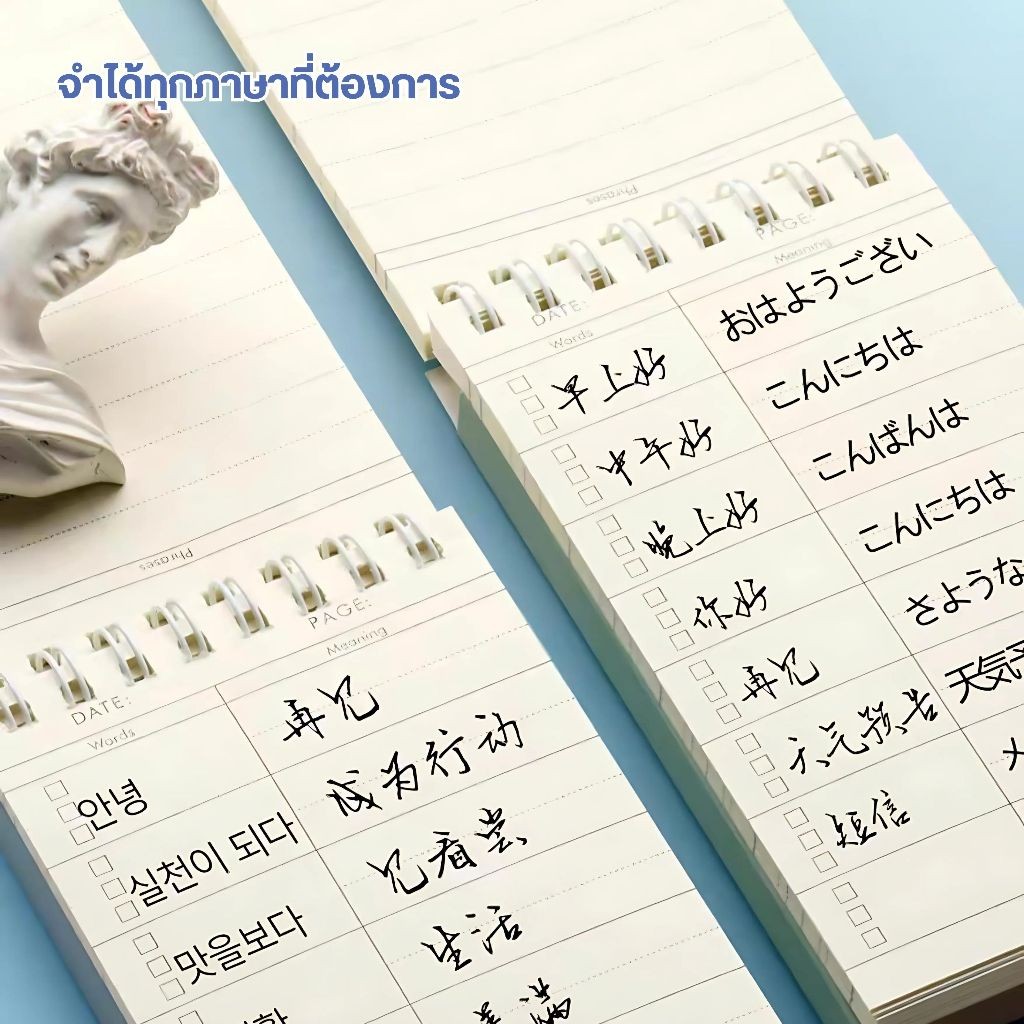 จำได้ทุกภาษาที่ต้องการ
Phrases
DATE:
PAGE:
Words
Meaning
早上好
おはようござい
中午好
こんにちは
晚上好
こんばんは
你好
こんにちは
再见
さような
天气预告
天気予
短信
メ
Phrases
DATE:
PAGE:
Words
Meaning
안녕
再见
실천이 되다
成为行动
맛을보다
见看尝
生活